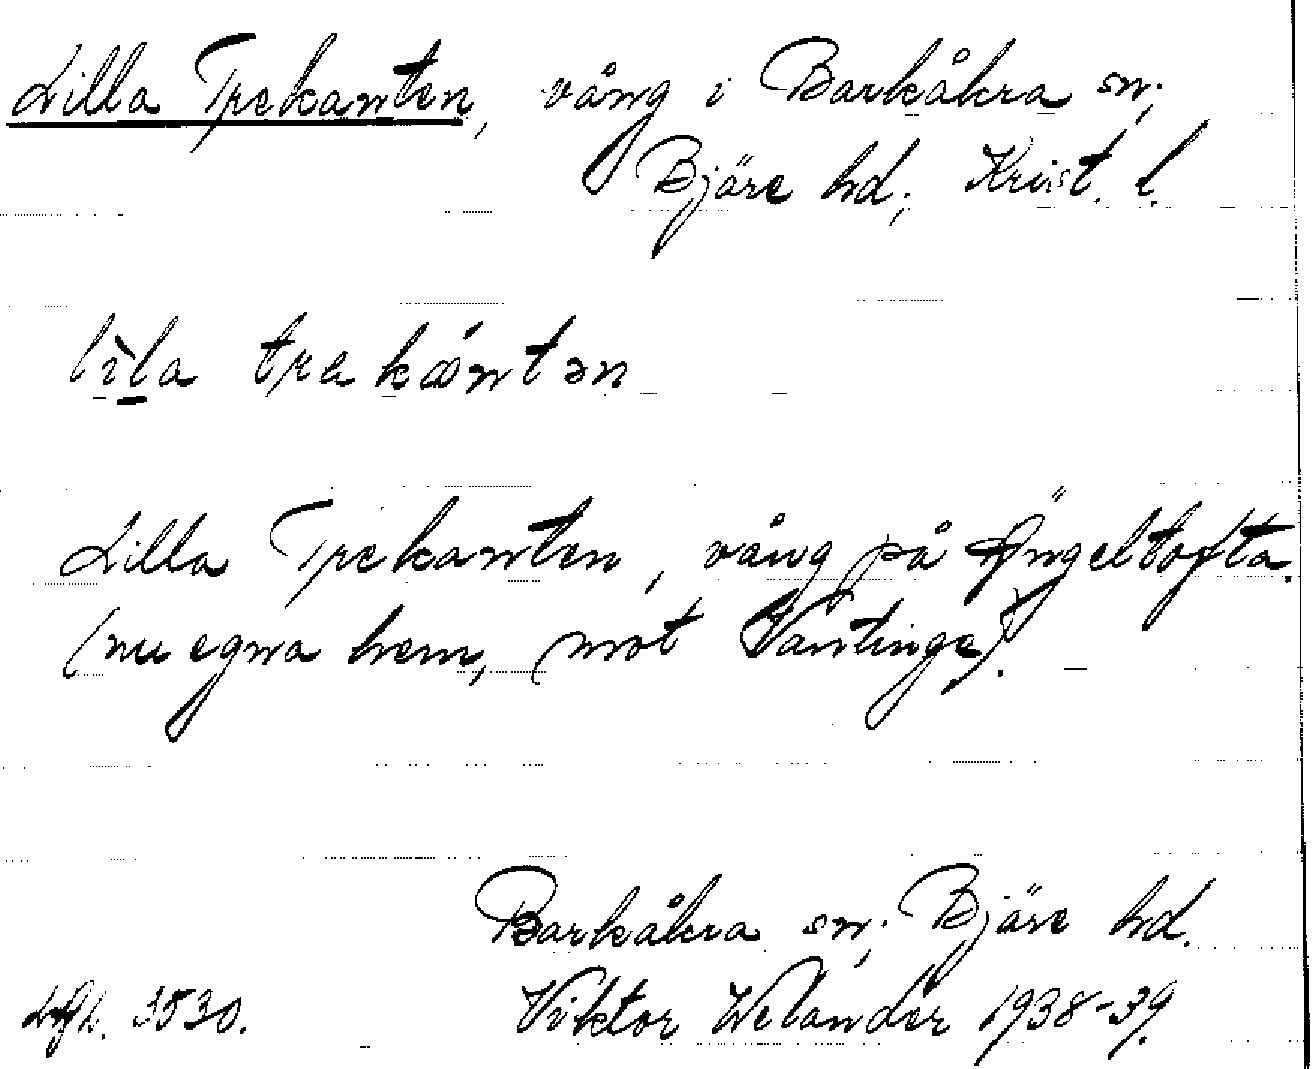 Lilla Trekanten, vång i Barkåkra sn;
Bjäre hd; Krist. l.
lìla trekántən
Lilla Trekanten, vång på Ängeltofta.
(nu egna hem, mot Vantinge).
Barkåkra sn; Bjäre hd.
3530. Viktor Welander 1938-39.